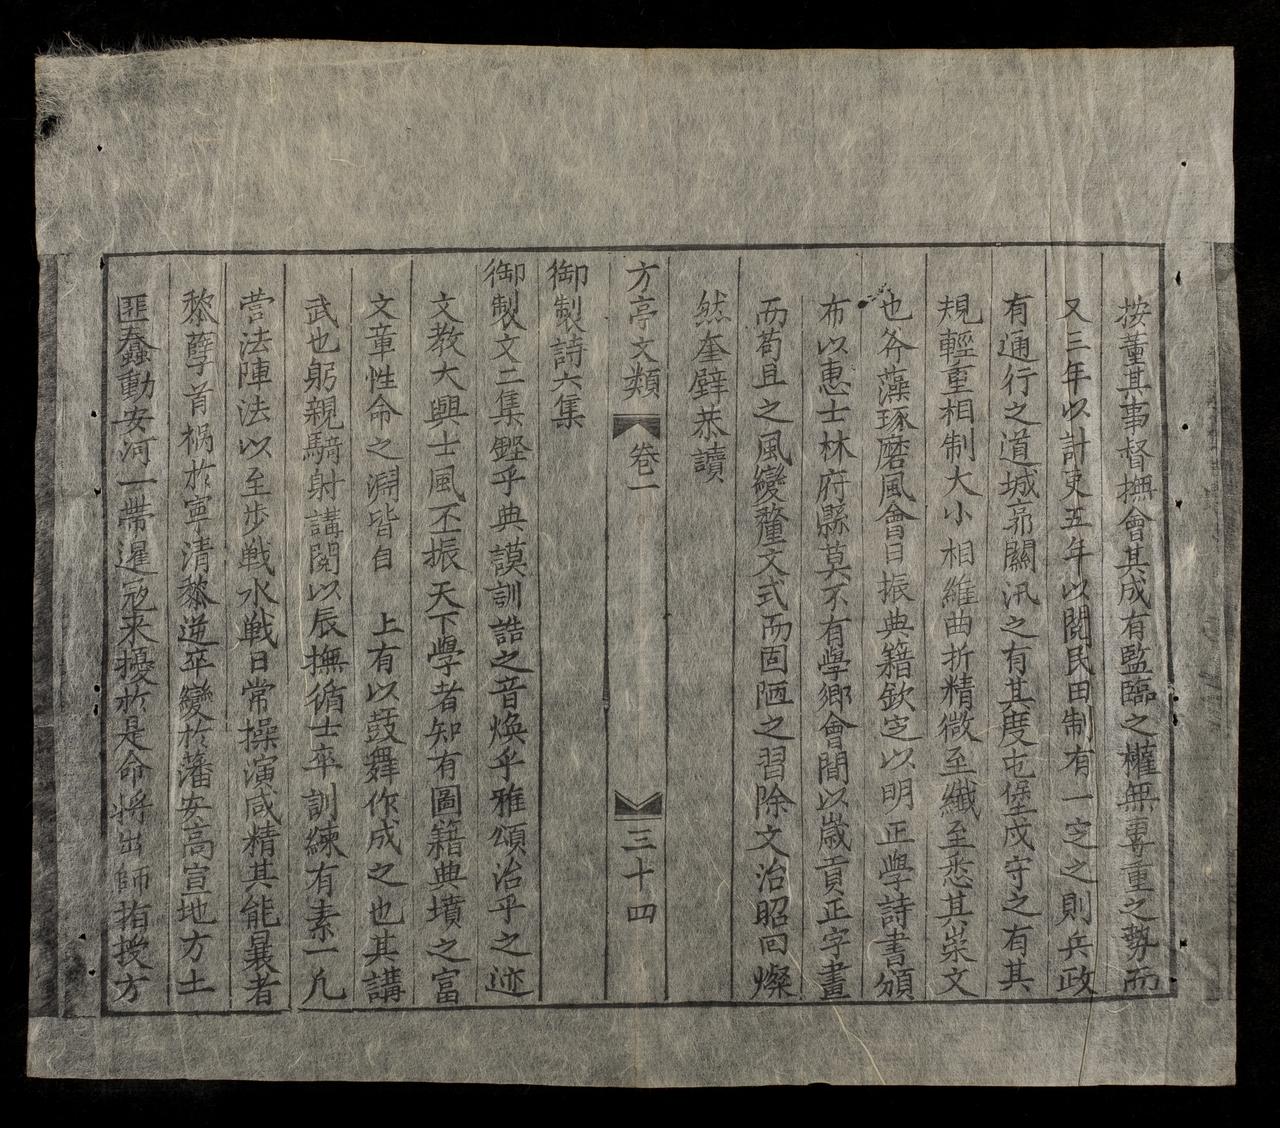 按董其事督撫會其成有監臨之權無專重之勢而
又三年以計吏五年以閱民田制有一定之則兵政
有通行之道城亭關汛之有其度屯堡戍守之有其
規輕重相制大小相維曲折精微至纖至悉其崇文
也斧藻琢磨風會日振典籍欽定以明正學詩書頒
布以惠士林府縣莫不有學鄉會間以歲貢正字畫
而苟且之風變釐文式而固陋之習除文治昭回燦
然奎壁恭讀
方亭文類 卷一 三十四
御製詩六集
御製文二集鏗乎典謨訓誥之音煥乎雅頌治乎之迹
文教大興士風丕振天下學者知有圖籍典墳之富
文章性命之淵皆自 上有以鼓舞作成之也其講
武也躬親騎射講閱以辰撫循士卒訓練有素一凡
營法陣法以至步戰水戰日常操演咸精其能曩者
黎孽首禍於寧清黎逆卒變於藩安高宣地方土
匪蠢動安河一帶暹寇來擾於是命將出師指授方